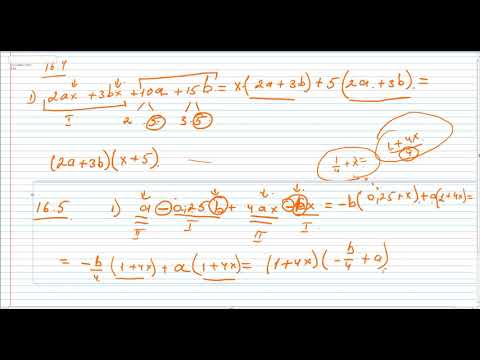 16.4
1) 2ax + 3bx + 10a + 15b = x(2a + 3b) + 5(2a + 3b) =
I 2 · 5 3 · 5
(2a+3b)(x+5)
1/4 + x = (1 + 4x)/4
16.5 1) a - 0,25b + 4ax - bx = -b(0,25 + x) + a(1+4x) =
II I II I
= -b/4 (1+4x) + a(1+4x) = (1+4x)(-b/4 + a)